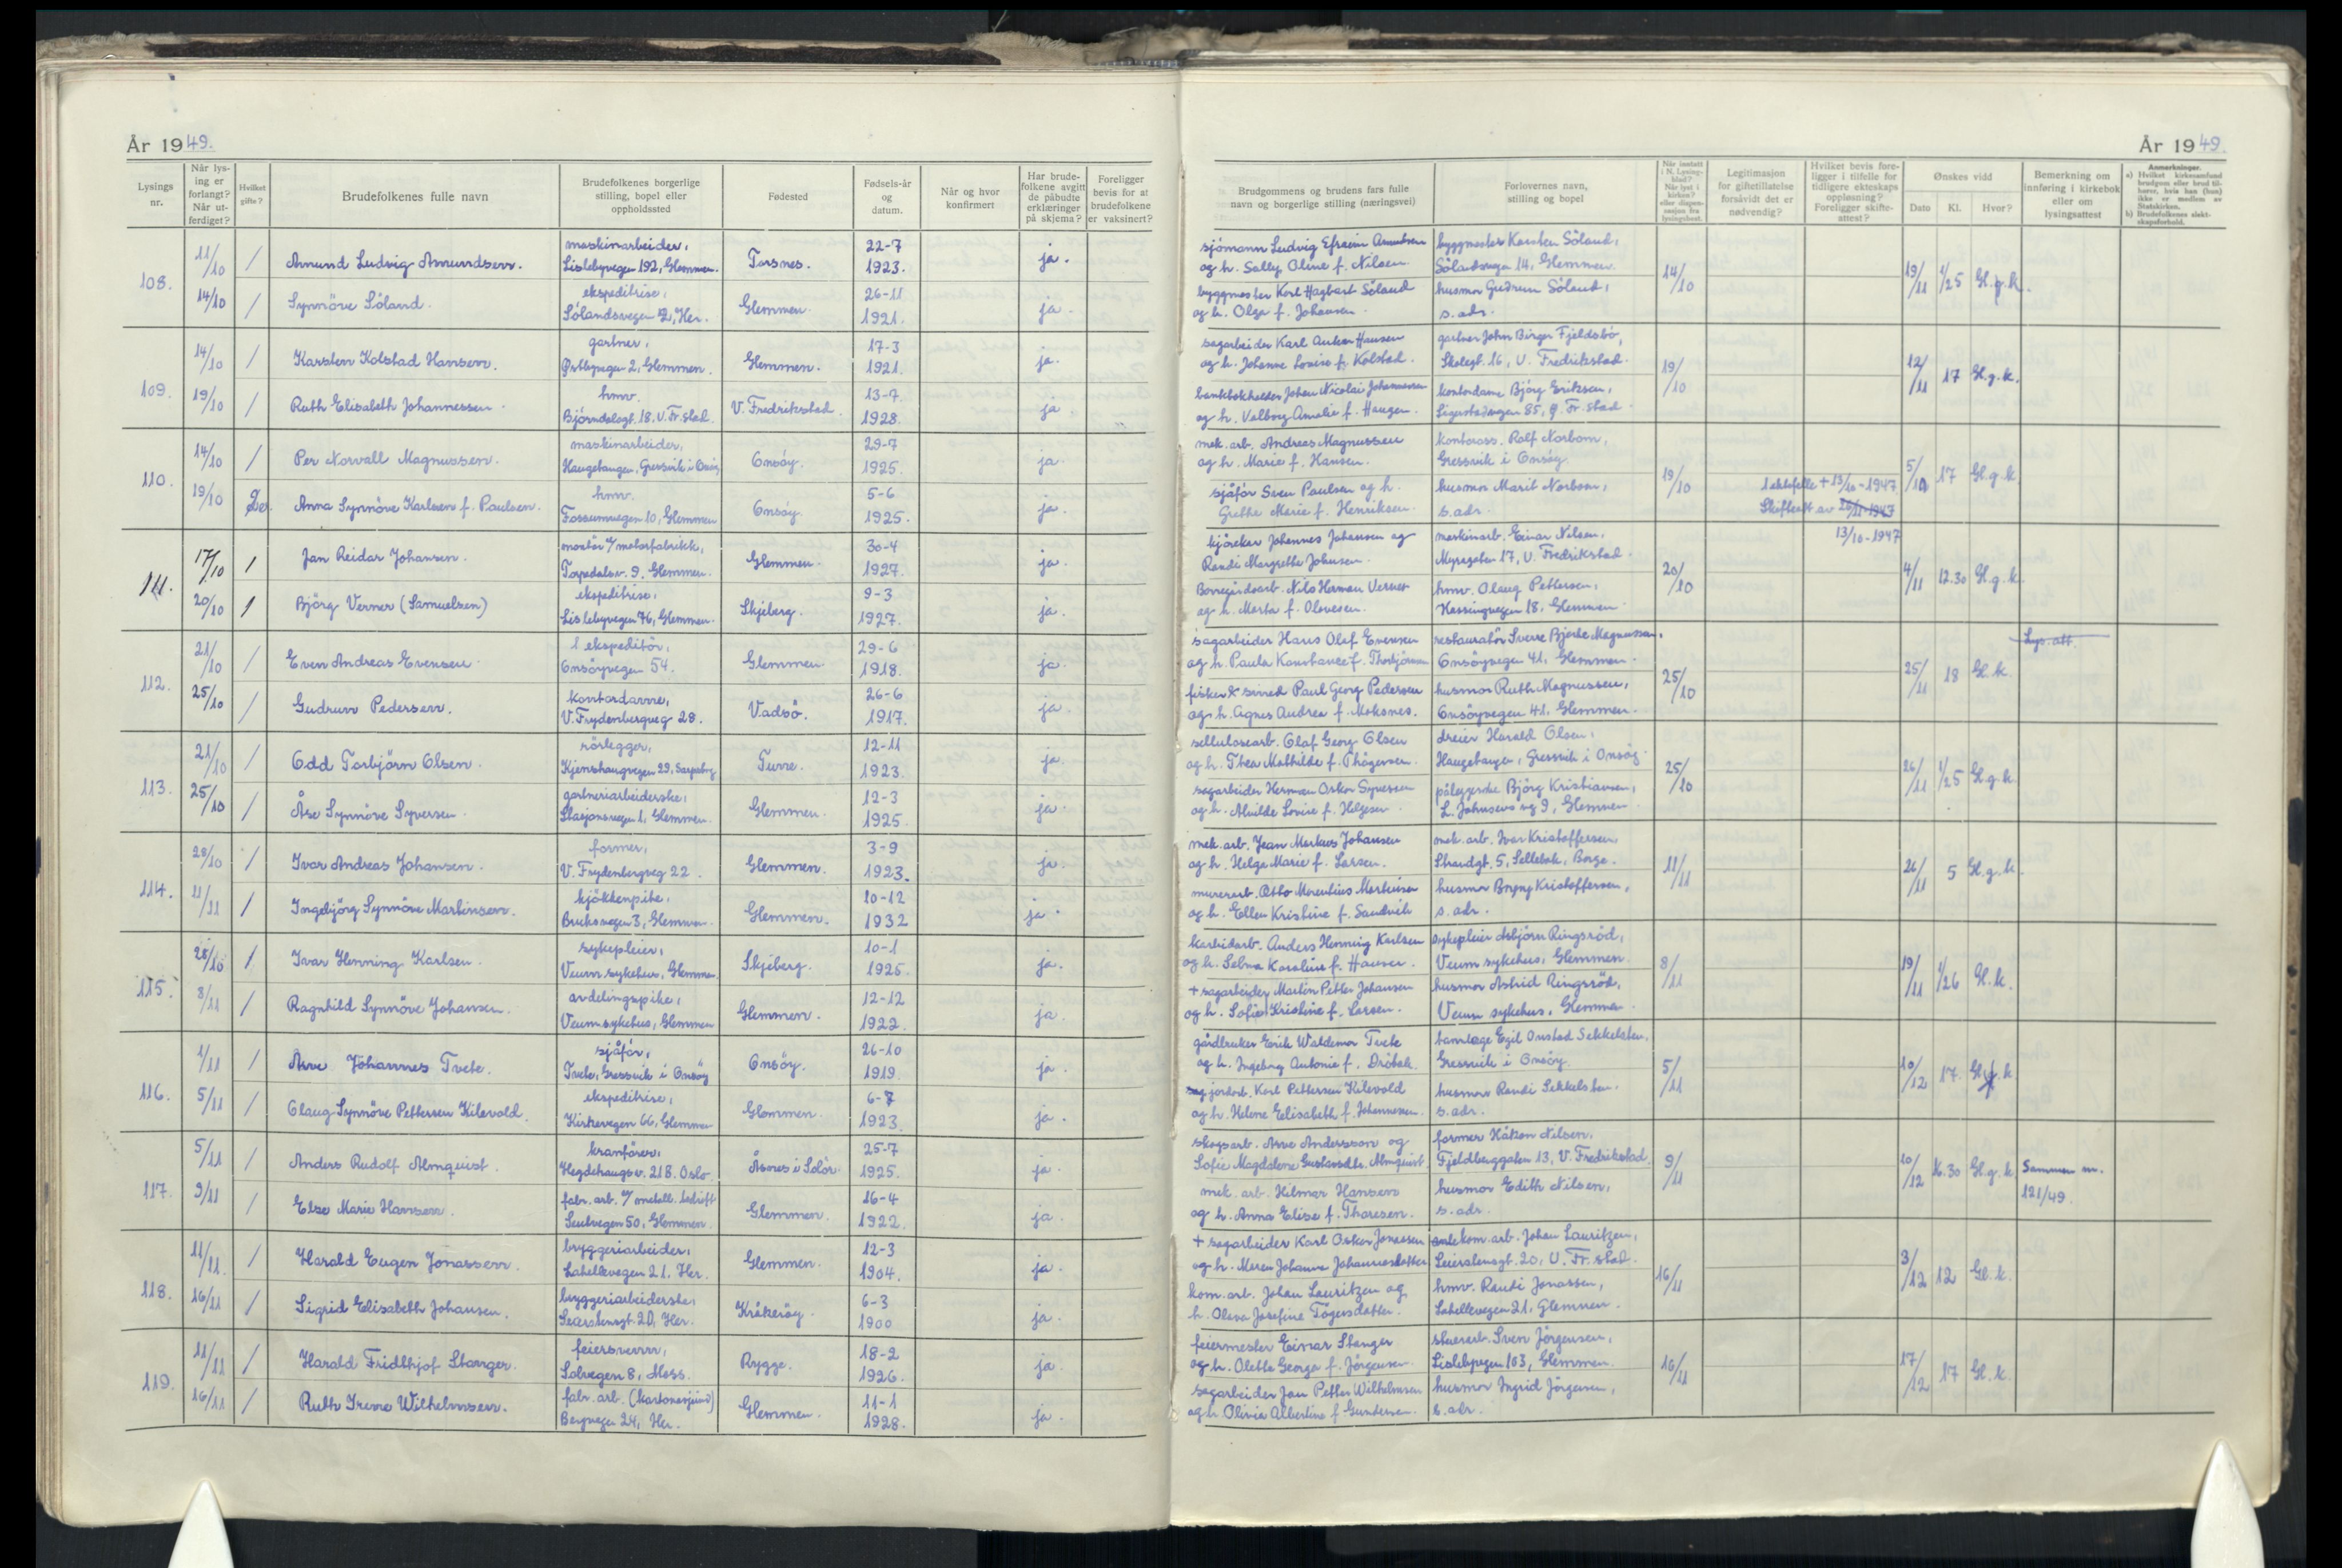 År 1949.
Lysings nr.
Når lysing er forlangt? Når utferdiget?
Hvilket gifte?
Brudefolkenes fulle navn
Brudefolkenes borgerlige stilling, bopel eller oppholdssted
Fødested
Fødsels-år og datum.
Når og hvor konfirmert
Har brudefolkene avgitt de påbudte erklæringer på skjema?
Foreligger bevis for at brudefolkene er vaksinert?
108.
11/10 / Amund Ludvig Amundsen. maskinarbeider, Lislebyvegen 192, Glemmen. Torsnes. 22-7 1923. ja.
14/10 / Synnöve Söland. ekspeditrise, Sölandsvegen, Her. Glemmen. 26-11 1921. ja.
109.
14/10 / Karsten Kolstad Hansen. gartner, Østbyvegen 2, Glemmen. Glemmen. 17-3 1921. ja.
19/10 / Ruth Elisabeth Johannessen. hmv. Björndalsgt. 18. V. Fr.stad. V. Fredrikstad. 13-7 1928. ja.
110.
14/10 / Per Norvall Magnussen. maskinarbeider, Haugetangen, Gressvik i Onsöy Onsöy. 29-7 1925. ja.
19/10 2. Anna Synnöve Karlsen f. Paulsen. hmv. Fossumvegen 10, Glemmen Onsöy. 5-6 1925. ja.
111.
17/10 1 Jan Reidar Johansen. montör v/motorfabrikk, Torpedalsv. 9. Glemmen. Glemmen. 30-4 1927. ja.
20/10 1 Björg Verner (Samuelsen) ekspeditrise, Lislebyvegen 76, Glemmen. Skjeberg. 9-3 1927. ja.
112.
21/10 / Even Andreas Evensen. 1 ekspeditör, Onsöyvegen 54. Glemmen. 29-6 1918. ja.
25/10 / Gudrun Pedersen. kontordame, V. Frydenbergveg 28. Vadsö. 26-6 1917. ja.
113.
21/10 / Odd Torbjörn Olsen. rörlegger, Kjenshaugvegen 29, Sarpsborg Tune. 12-11 1923. ja.
25/10 / Åse Synnöve Syversen. gartneriarbeiderske, Stasjonsvegen 1, Glemmen. Glemmen. 12-3 1925. ja.
114.
28/10 / Ivar Andreas Johansen. former, V. Frydenbergveg 22. Glemmen. 3-9 1923. ja.
11/11 / Ingebjörg Synnöve Martinsen. kjökkenpike, Bruksvegen 3, Glemmen. Glemmen. 10-12 1932 ja.
115.
28/10 / Ivar Henning Karlsen. sykepleier, Veum sykehus, Glemmen. Skjeberg. 10-1 1925. ja.
8/11 / Ragnhild Synnöve Johansen. avdelingspike, Veum sykehus, Glemmen Glemmen. 12-12 1922. ja.
116.
1/11 / Arve Johannes Tvete. sjåför, Tvete, Gressvik i Onsöy Onsöy. 26-10 1919. ja.
5/11 / Olaug Synnöve Pettersen Kilevold. ekspeditrise, Kirkevegen 66, Glemmen Glemmen. 1923. ja.
117.
5/11 / Anders Rudolf Almquist. kranförer, Hegdehaugsv. 21 B. Oslo. Åsnes i Solör. 25-7 1925. ja.
9/11 / Else Marie Hansen. fabr. arb. v/metall. bedrift Seutvegen 50, Glemmen. Glemmen. 16-4 1922. ja.
118.
11/11 / Harald Eugen Jonassen. bryggeriarbeider, Lahellevegen 21. Her. Glemmen. 12-3 1904. ja.
16/11 / Sigrid Elisabeth Johansen. bryggeriarbeiderske, 20, Her. Kråkeröy. 6-3 1900 ja.
119.
11/11 / Harald Fridthjof Stanger. feiersvenn, Solvegen 8, Moss. Rygge. 18-2 1926. ja.
16/11 / Ruth Irene Wilhelmsen. fabr. arb. Bergvegen 24, Her. Glemmen. 11-1 1928. ja.
År 1949.
Brudgommens og brudens fars fulle navn og borgerlige stilling (næringsvei)
Forlovernes navn, stilling og bopel
Når innsatt i N. Lysingsblad? Når lyst i kirken? eller dispensasjon fra lysingsbest.
Legitimasjon for giftetillatelse forsåvidt det er nødvendig?
Hvilket bevis foreligger i tilfelle for tidligere ekteskaps oppløsning? Foreligger skifteattest?
Ønskes vidd
Dato Kl. Hvor?
Bemerkning om innføring i kirkebok eller om lysingsattest
Anmerkninger.
a) Hvilket kirkesamfund brudgom eller brud tilhører, hvis han (hun) ikke er medlem av Statskirken.
b) Brudefolkenes slektskapsforhold.
sjömann Ludvig Efraim Amundsen og h. Sally Oline f. Nilsen
byggmester Karsten Söland, Sölandsvegen 14, Glemmen.
14/10 19/11 1/25 Gl.g.k.
byggmester Karl Hagbart Söland og h. Olga f. Johansen.
husmor Gudrun Söland, s. adr.
sagarbeider Karl Anker Hansen og h. Johanne Lovise f. Kolstad.
gartner John Birger Fjeldsbö, Skolegt. 16, V. Fredrikstad.
19/10 12/11 17 Gl.g.k.
bankbokholder Johan Nicolai Johannessen og h. Valborg Amalie f. Haugen.
kontordame Björg Eriksen, 85, Fr.stad
mek. arb. Andreas Magnussen og h. Marie f. Hansen.
kontorass. Rolf Norbom, Gressvik i Onsöy
19/10 17 Gl.g.k.
sjåför Sven Paulsen og h. Grethe Marie f. Henriksen.
husmor Marit Norbom, s. adr.
1 ektefelle + 13/10-1947. Skifteatt av 13/10-1947
kjörekar Johannes Johansen og Randi Margrethe Johansen.
maskinarb. Einar Nilsen, Myragaten 17, V. Fredrikstad.
20/10 4/11 12.30 Gl.g.k.
Borregårdsarb. Nils Herman Verner og h. Marta f. Olavesen.
hmv. Olaug Pettersen, 18. Glemmen.
sagarbeider Hans Olaf Evensen og h. Paula Konstance f. Thorbjörnsen
restauratör Sverre Bjerke Magnussen, Onsöyvegen 41, Glemmen.
25/10 25/11 18 Gl.k. Lys. att.
fisker & smed Paul Georg Pedersen og h. Agnes Andrea f. Moksnes.
husmor Ruth Magnussen, Onsöyvegen 41. Glemmen.
cellulosearb. Olaf Georg Olsen og h. Thea Mathilde f. Thögersen.
dreier Harald Olsen, Haugetangen, Gressvik i Onsöy.
25/10 26/11 1/25 Gl.g.k
sagarbeider Herman Oskar Syversen og h. Alvilde Lovise f. Helgesen.
påleggerske Björg Kristiansen, L. Johnsens vg 9, Glemmen
mek. arb. Jean Markus Johansen og h. Helga Marie f. Larsen.
mek. arb. Ivar Kristoffersen, Strandgt. 5, Sellebak, Borge.
11/11 26/11 5 Gl.g.k.
murerarb. Otto Marentius Martinsen og h. Ellen Kristine f. Sandvik
husmor Bryny Kristoffersen, s. adr.
karbidarb. Anders Henning Karlsen og h. Selma Karoline f. Hansen.
sykepleier Asbjörn Ringsröd, Veum sykehus, Glemmen.
8/11 19/11 1/26 Gl.k.
+ sagarbeider Martin Petter Johansen og h. Sofie Kristine f. Larsen.
husmor Astrid Ringsröd, Veum sykehus. Glemmen.
gårdbruker Erik Waldemar Tvete og h. Ingeborg Antonie f. Dröbak.
tannlege Egil Onstad Sekkelsten, Gressvik i Onsöy.
5/11 10/12 17. Gl.k
jordarb. Karl Pettersen Kilevold og h. Helene Elisabeth f. Johannessen.
husmor Randi Sekkelsten. s. adr.
skogsarb. Arve Andersson og Sofie Magdalene Gustavsdtr. Almquist.
former Håkon Nilsen, Fjeldberggaten 13, V. Fredrikstad.
9/11 10/12 16.30 Gl.g.k Sammen m. 121/49.
mek. arb. Hilmar Hansen og h. Anna Elise f. Thoresen.
husmor Edith Nilsen, s. adr.
+ sagarbeider Karl Oskar Jonassen og h. Maren Johanne Johannesdatter
kom. arb. Johan Lauritzen, 20, V. Fr.stad.
16/11 3/12 12 Gl.k.
kom. arb. Johan Lauritzen og h. Oleva Josefine Tögersdatter.
hmv. Randi Jonassen, Lahellevegen 21, Glemmen.
feiermester Einar Stanger og h. Olette Georga f. Jörgensen
stuerarb. Sven Jörgensen, Lislebyvegen 103, Glemmen.
16/11 17/12 17 Gl.k.
sagarbeider Jan Petter Wilhelmsen og h. Olivia Albertine f. Gundersen.
husmor Ingrid Jörgensen, s. adr.